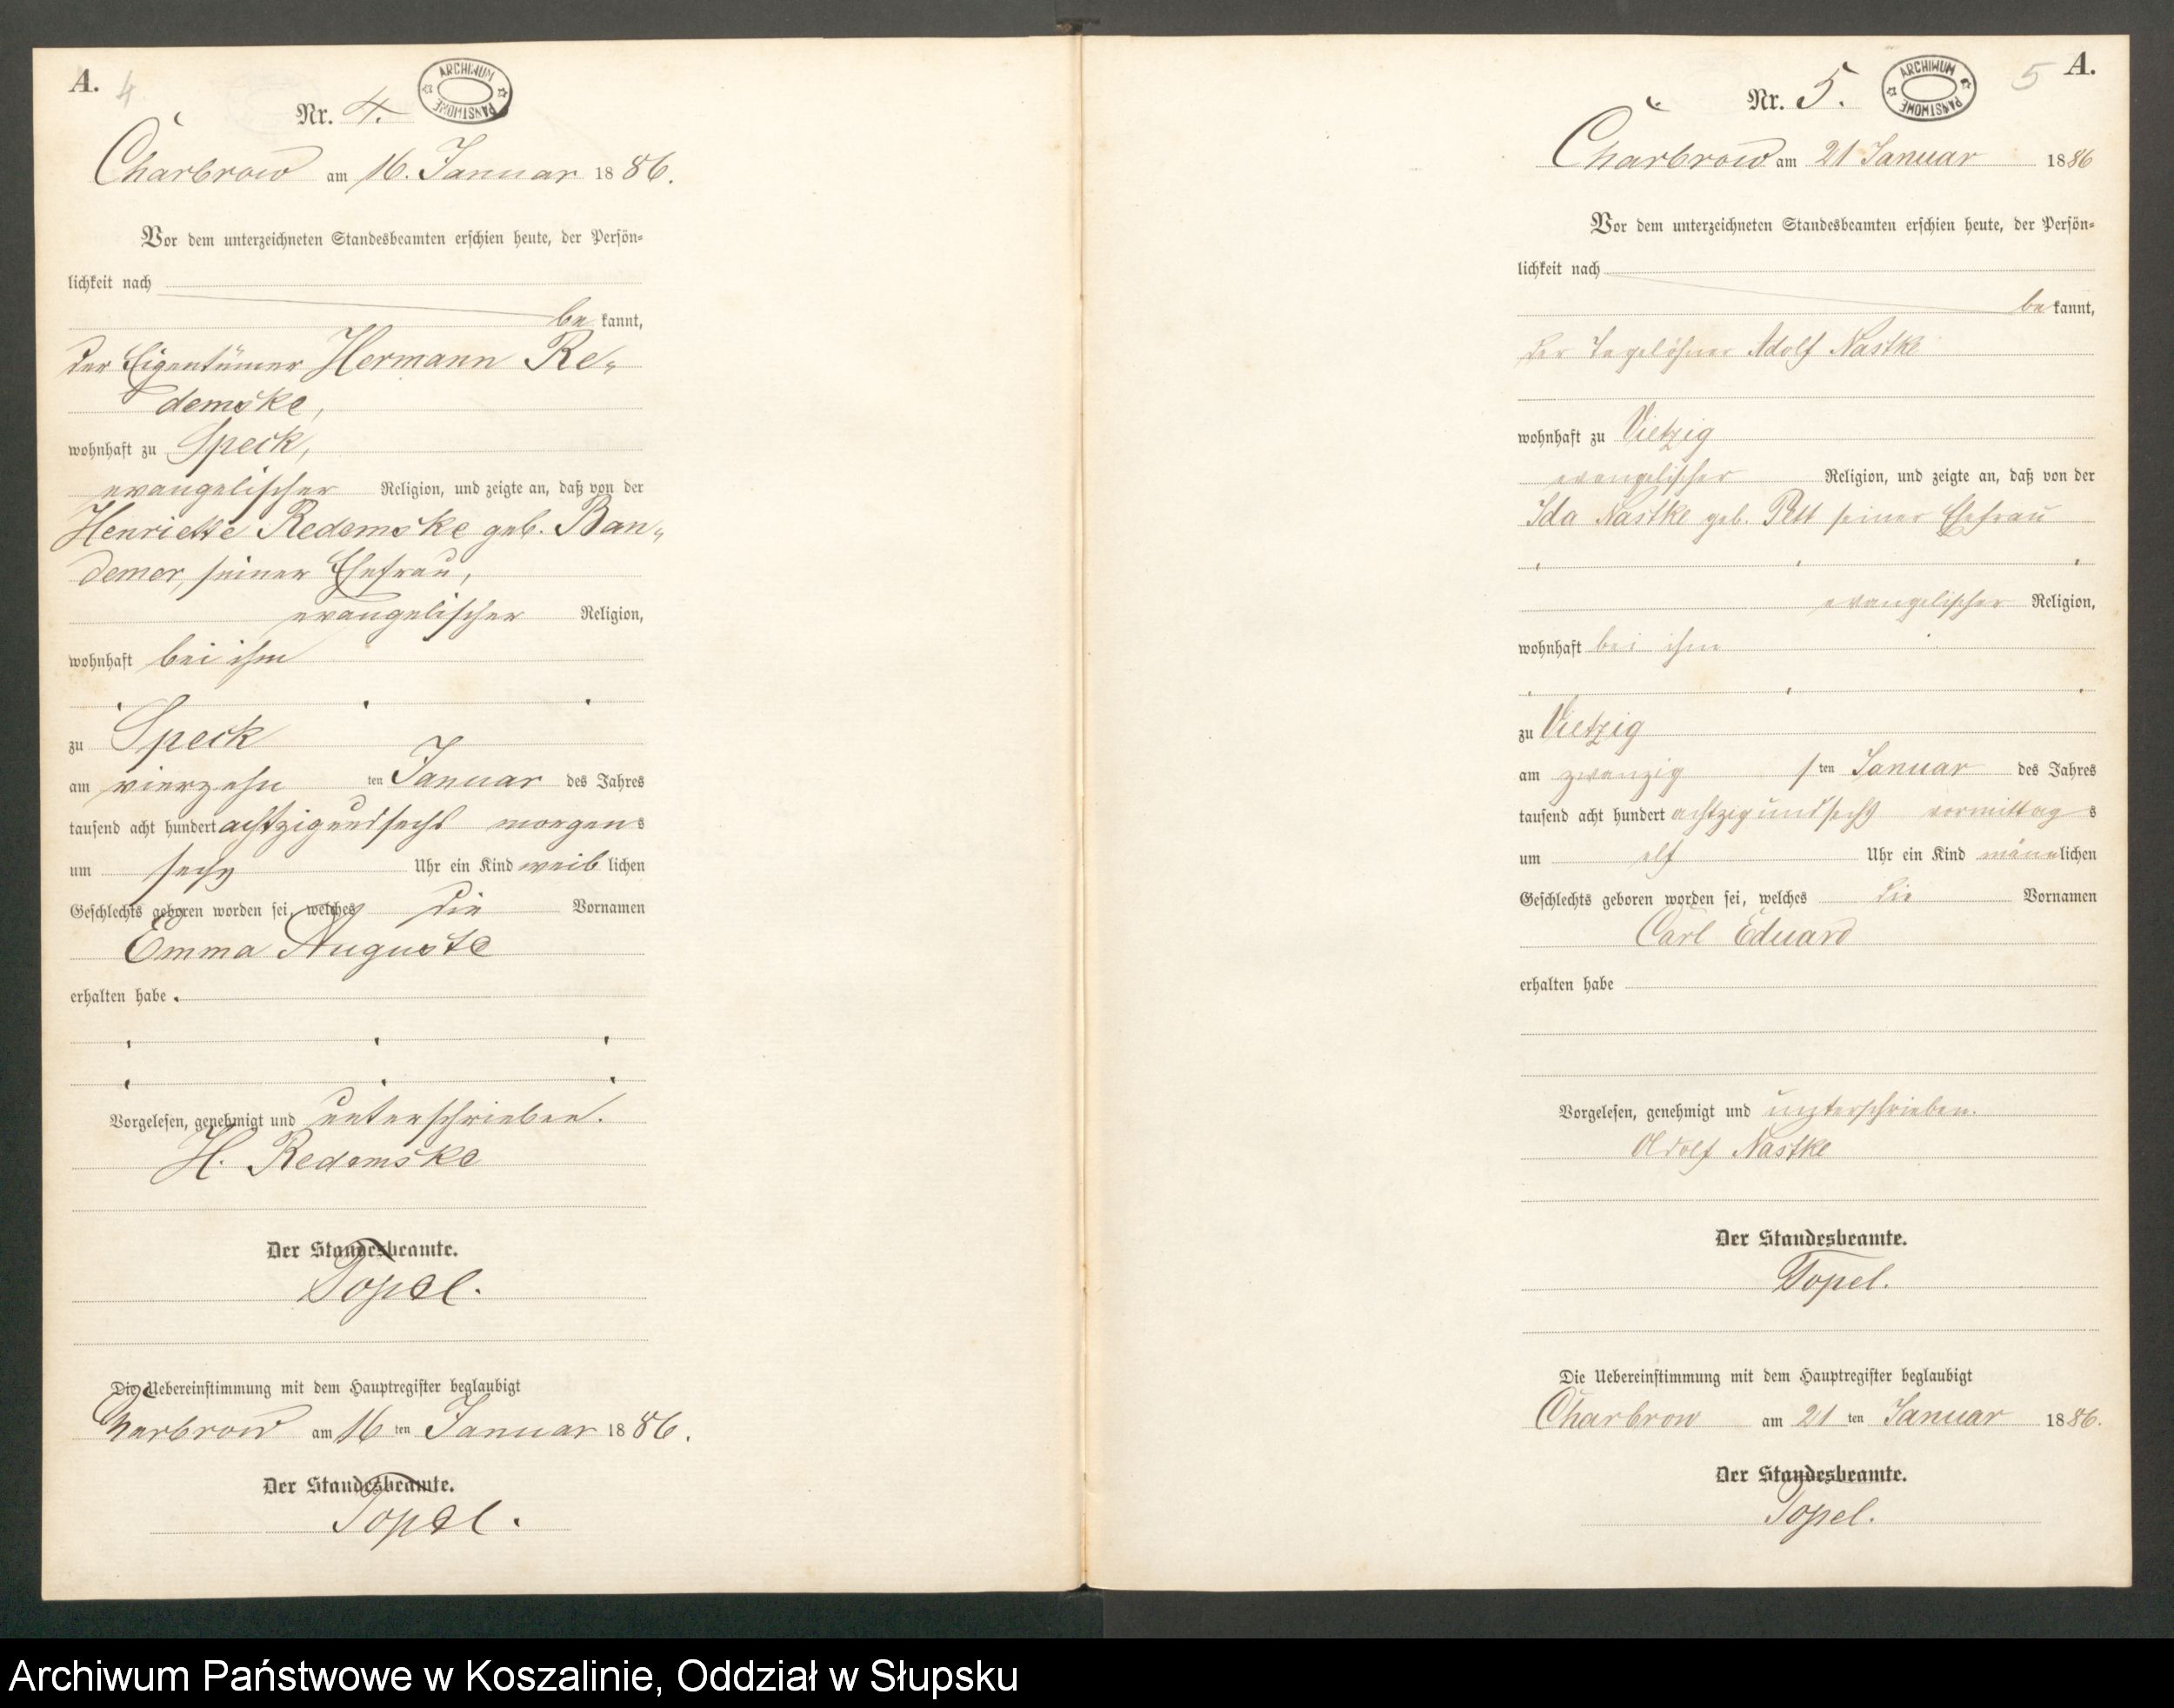 A.
4
Nr. 4.
ARCHIWUM PAŃSTWOWE
Charbrow am 16. Januar 1886.
Vor dem unterzeichneten Standesbeamten erschien heute, der Persön=
lichkeit nach
be kannt,
der Eigentümer Hermann Re„
demske,
wohnhaft zu Speck,
evangelischer Religion, und zeigte an, daß von der
Henriette Redemske geb. Ban„
demer, seiner Ehefrau,
evangelischer Religion,
wohnhaft bei ihm
zu Speck
am vierzehn ten Januar des Jahres
tausend acht hundert achtzig und sechs morgens
um sechs Uhr ein Kind weiblichen
Geschlechts geboren worden sei, welches die Vornamen
Emma Auguste
erhalten habe.
Vorgelesen, genehmigt und unterschrieben.
H. Redemske
Der Standesbeamte.
Topel.
Die Uebereinstimmung mit dem Hauptregister beglaubigt
Charbrow am 16 ten Januar 1886.
Der Standesbeamte.
Topel.
5 A.
Nr. 5.
ARCHIWUM PAŃSTWOWE
Charbrow am 21 Januar 1886
Vor dem unterzeichneten Standesbeamten erschien heute, der Persön=
lichkeit nach
be kannt,
der Tagelöhner Adolf Nastke
wohnhaft zu Vietzig
evangelischer Religion, und zeigte an, daß von der
Ida Nastke geb. seiner Ehefrau
evangelischer Religion,
wohnhaft bei ihm
zu Vietzig
am zwanzig sten Januar des Jahres
tausend acht hundert achtzig und sechs vormittags
um elf Uhr ein Kind männlichen
Geschlechts geboren worden sei, welches die Vornamen
Carl Eduard
erhalten habe
Vorgelesen, genehmigt und unterschrieben.
Adolf Nastke
Der Standesbeamte.
Topel.
Die Uebereinstimmung mit dem Hauptregister beglaubigt
Charbrow am 21 ten Januar 1886.
Der Standesbeamte.
Topel.
Archiwum Państwowe w Koszalinie, Oddział w Słupsku